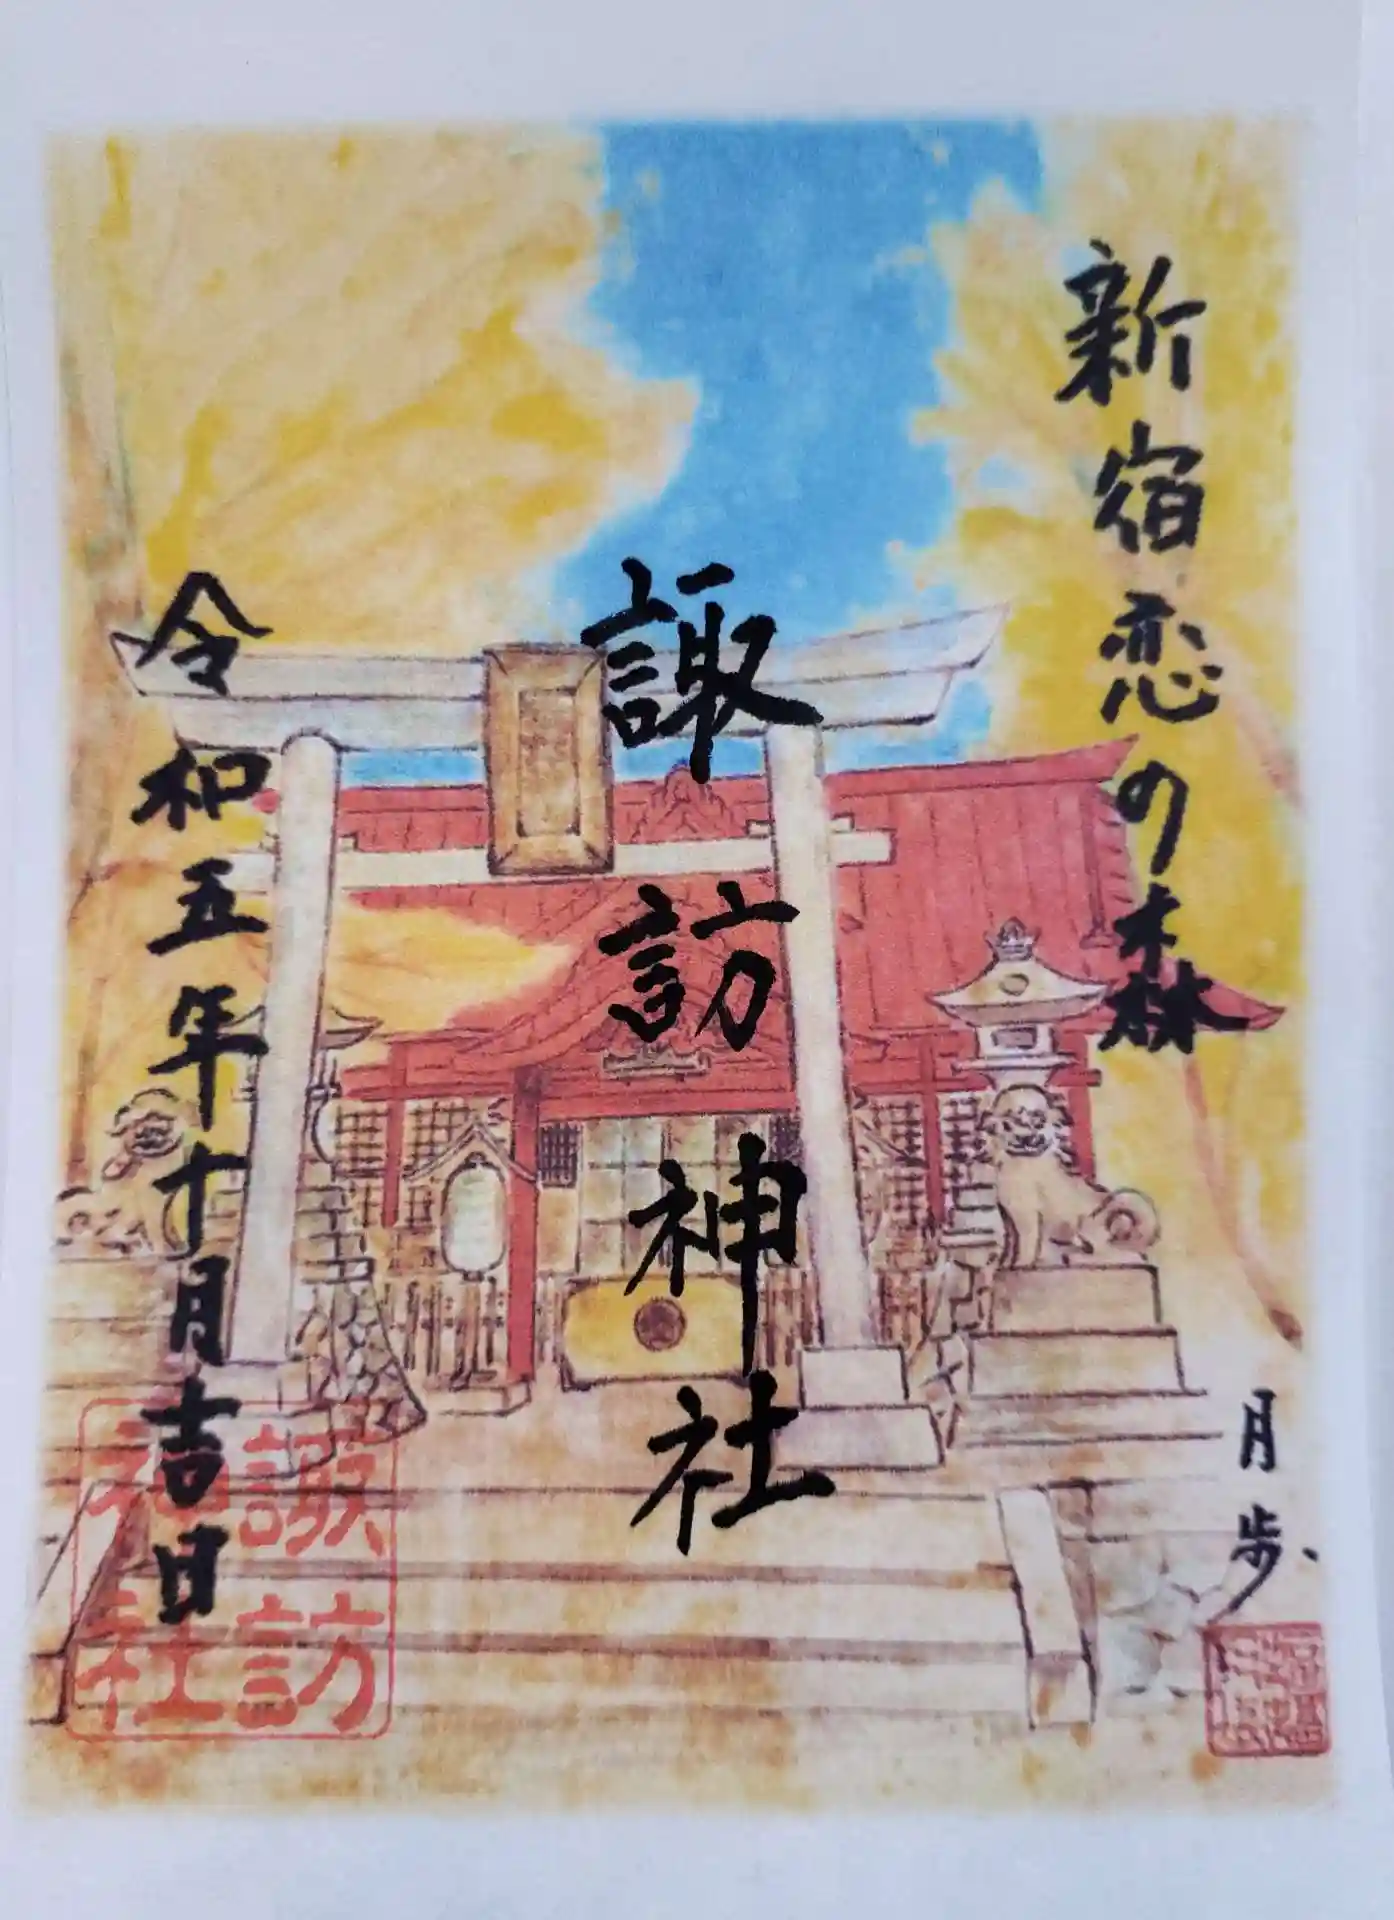 新宿恋の森
月歩
諏訪神社
令和五年十月吉日
諏訪
神社